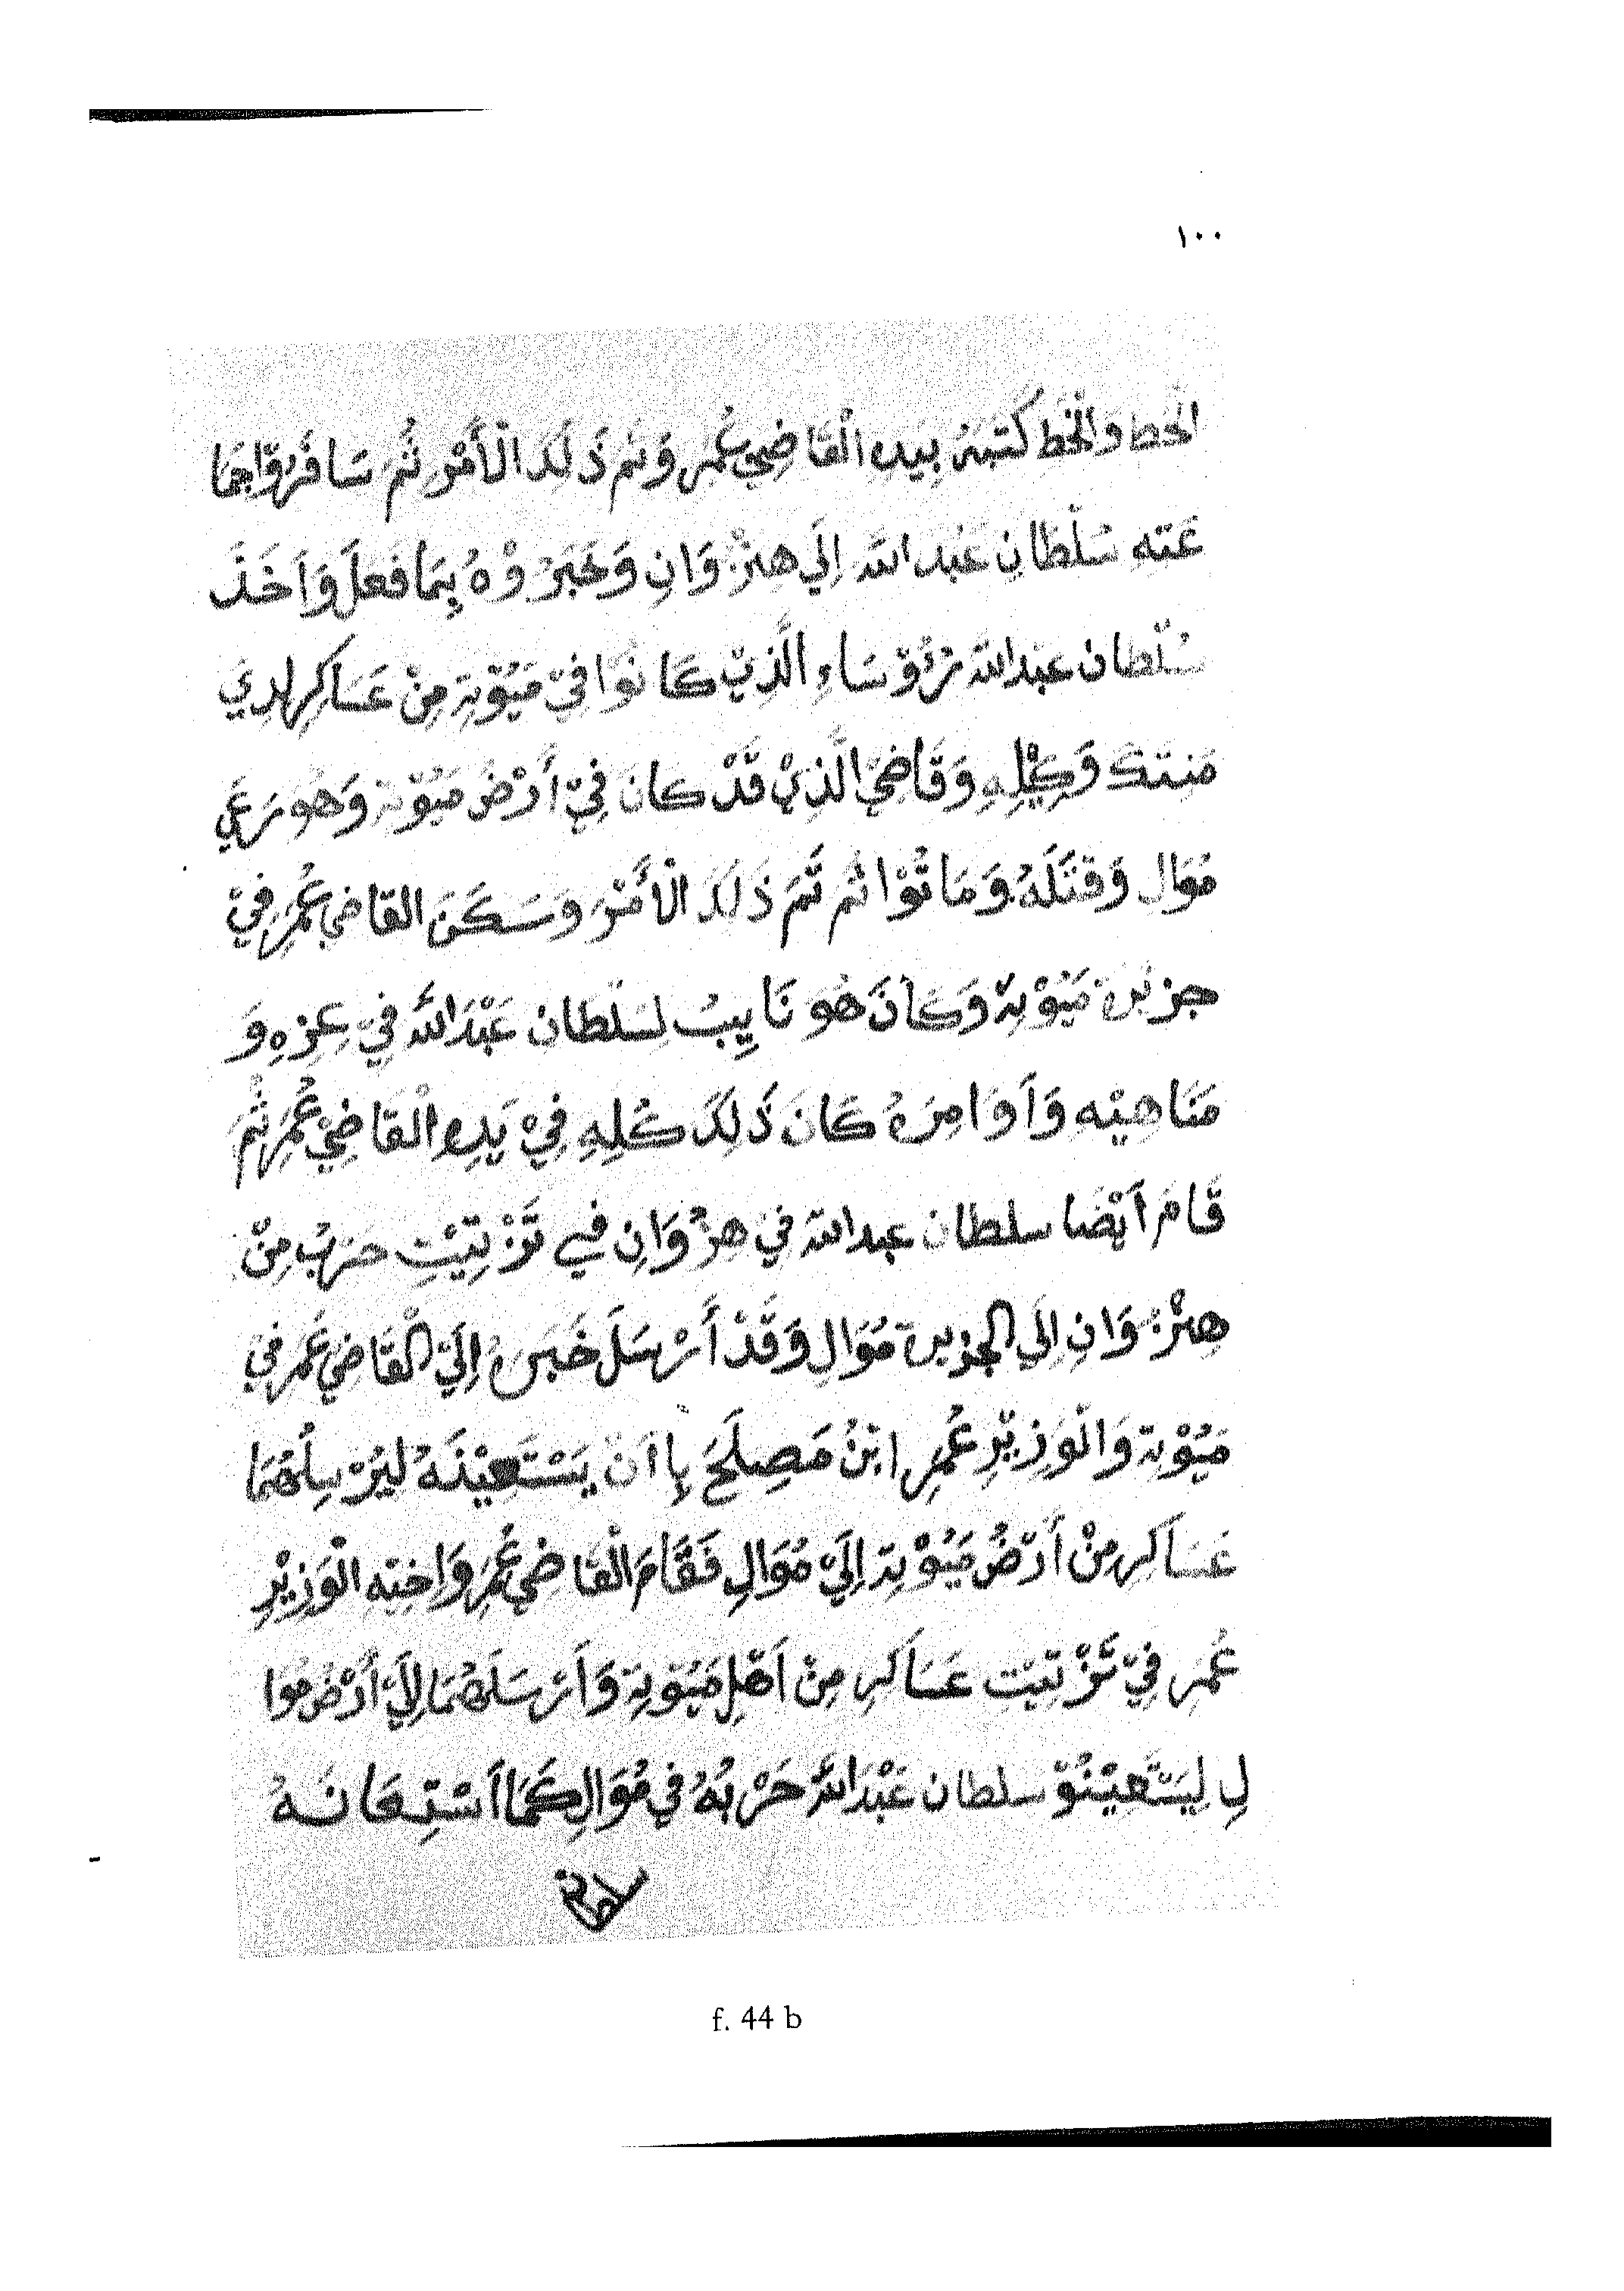 ١٠٠
الْخَط وَالْخَط كَتَبَهُ بِيَدِهِ الْقَاضِيْ عُمَرِ وَثَم ذَلَكَ الْأَمْرِ ثُمَ سَافَرُوْا جَمَا
عَتِهِ سُلْطَانِ عَبْدِ اللَّه اِلَي هِنْزُوَانِ وَخَبَرُوْهُ بِمَا فَعَلَ وَاَخَذَ
سُلْطان عبدالله رُؤوْسَاءِ الَّذِيْ كَانُوْا فِيْ مَيُوْتِة مِنْ عَسَاكِرِ
وَكِيْلِهِ وَقَاضِيْ الَّذِيْ قَدْ كَانَ فِيْ أَرْضُ مَيُوْتة وَهُو
مُوَالِ وَقَتَلَهُ وَمَاتُوْا ثُم تَمَ ذَلَكَ الْأَمْرِ وَسَكَنَ القاضِي عُمَرِ فِيْ
جزيرة مَيُوْتِة وَكَانَ هُو نَايِبُ لسُلْطان عَبْدَ اللَّه فِيْ عِزِهِ وَ
مَنَاهِيْهِ وَاَوَامِرَهُ كَانَ ذَلِكَ كُلِهِ فِيْ يَدِهِ الْقَاضِيْ عُمَرِ ثُمَ
قَامَ اَيْضَا سلطان عبدالله فِيْ هِنْزُوَانِ فِي تَرْتِيْتِ حَرْبُ مِنْ
هِنْزُوَانِ اِلَي الجزيرة مُوَالِ وَقَدْ أَرْسَلَ خَبَرَهُ اِلَيْ الْقَاضِي عُمَرِ فِيْ
مَيُوْتِة وَالْوَزِيْرِ عُمَرِ ابْنُ مَصِلَحَ بِااَنْ يَسْتَعِيْنَهُ لِيُرْسِلْهُمَا
عَسَاكِرِ مِنْ أَرْضُ مَيُوْتِة اِلَيْ مُوَالِ فَقَامَ الْقَاضِيْ عُمَرِ وَاخِيْهِ الْوَزِيْرِ
عُمَرِ فِيْ تَرْتِيْتِ عَسَاكِرِ مِنْ اَهْلِ مَيُوْتِة وَأَرْسَلَهُمَا اِلَيْ أَرْضُ مُوَا
لِ لِيَسْتَعِيْنُوْ سلطان عَبْدَ اللَّه حَرْبُهُ فِي مُوَالِ كَمَا اَسْتِعَانَهُ
f. 44 b